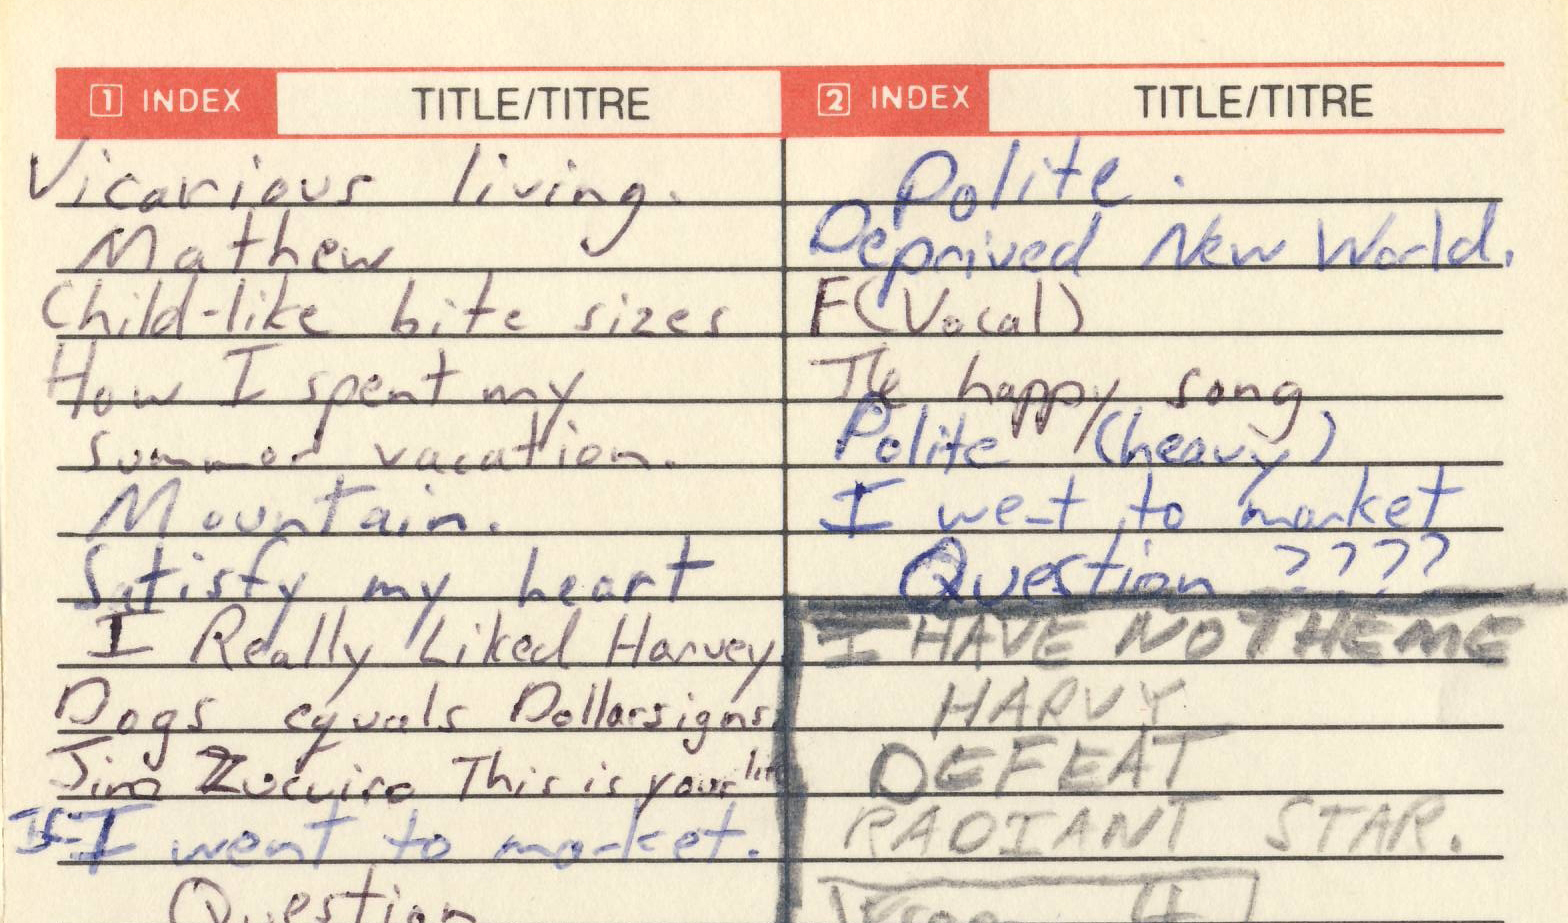 1 INDEX TITLE/TITRE
Vicarious living.
Mathew
Child-like bite sizes
How I spent my
summer vacation.
Mountain.
Satisfy my heart
I Really Liked Harvey
Dogs equals Dollarsigns.
Jim Zuccuiro This is your life
I went to market.
Question
2 INDEX TITLE/TITRE
Polite.
Deprived New World.
F(Vocal)
The happy song
Polite (heavy)
I went to market
Question ????
I HAVE NO THEME
HARVY
DEFEAT
RADIANT STAR.